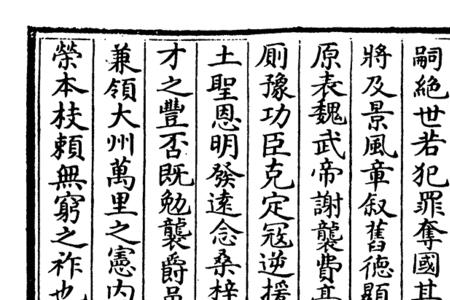 嗣絶世若犯罪奪國其
將及景風章叙舊德顯
原表魏武帝謝襲費亭
厠豫功臣克定寇逆援
土聖恩明發遠念桑梓
才之豐否既勉襲爵邑
兼領大州萬里之憲内
榮本枝頼無窮之祚也